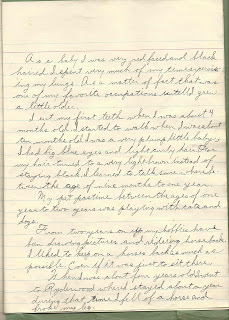 As a baby I was very red faced and black
haired. I spent very much of my time exercis
ing my lungs. As a matter of fact that was
one of my favorite occupations until I grew
a little older.
I cut my first teeth when I was about 4
months old. I started to walk when I was about
ten months old. I was a very plump little baby.
I had big blue eyes and light curly hair. For
my hair turned to a very light brown instead of
staying black. I learned to talk some where be
tween the age of nine months to one year.
My pet pastime between the ages of one
year to two years was playing with cats and
dogs.
From two years on up my hobbies have
been drawing pictures and riding horseback.
I liked to keep on a horses back as much as
possible. Even if it was just to sit there.
When I was about four years old I went
to Ryderwood where I stayed about a year
during that time I fell of a horse and
broke my leg.